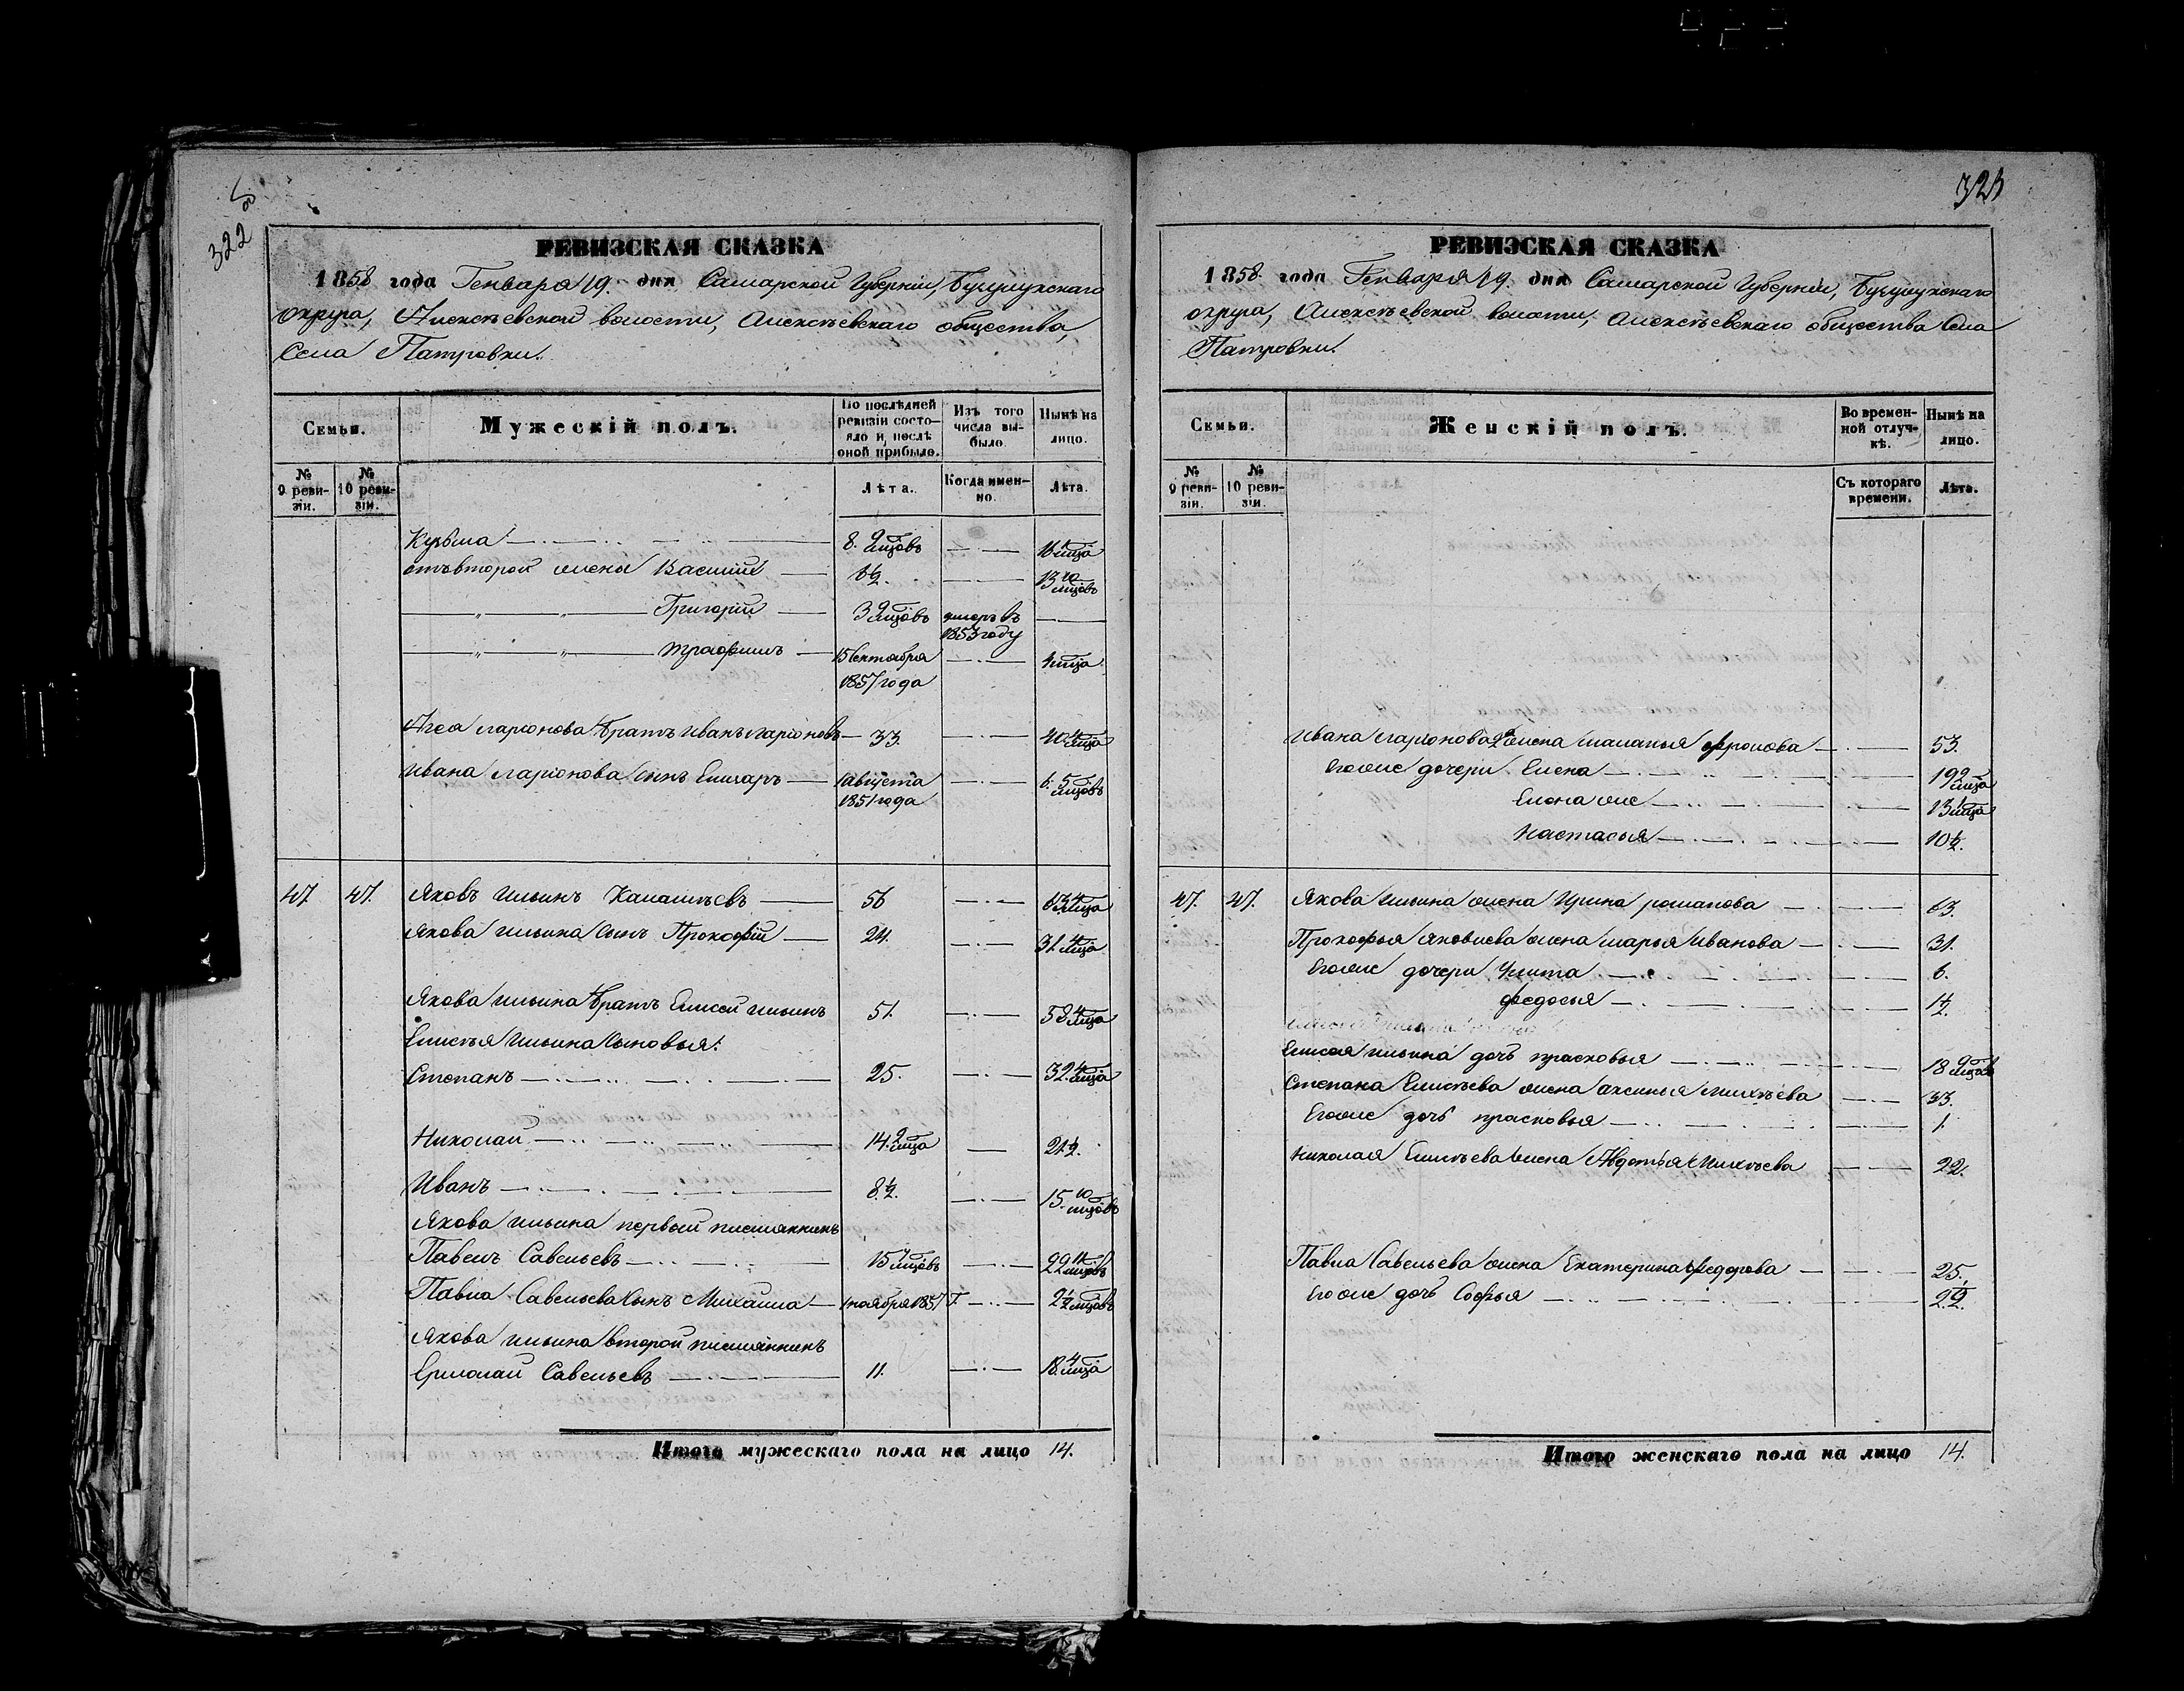 322 об
РЕВИЗСКАЯ СКАЗКА
1858 года Генваря 19 дня Самарской Губерніи, Бузулукскаго
округа, Алексѣевской волости, Алексѣевскаго общества,
Села Патровки.
Семьи.
Мужескій полъ.
По послѣдней ревизіи состояло и, послѣ оной прибыло.
Изъ того числа выбыло.
Нынѣ на лицо.
№ 9 ревизіи.
№ 10 ревизіи.
Лѣта.
Когда именно.
Лѣта.
Кузьма 8. 9 мцовъ
отъ второй жены Василій 6 1/2. 13 10 мцовъ
" " Григорій 3 9 мцовъ умеръ въ 1853 году
" " Трафимъ 15 Сентября 1857 года 4 мца
Ларіонова братъ Иванъ Ларіоновъ 33. 40 4 мца
Ивана Ларіонова сынъ Елизаръ 1 августа 1851 года 6. 5 мцовъ
47. 47. Яковъ Ильинъ 56 63 4 мца
Якова Ильина сынъ Прокофій 24. 31. 4 мца
Якова Ильина братъ Елисей Ильинъ 51. 58 4 мца
Елисѣя Ильина сыновья:
Степанъ 25. 32 4 мца
Николай 14. 2 мца 21 1/2.
Иванъ 8 1/2. 15. 10 мцовъ
Якова Ильина первый племянникъ
Павелъ Савельевъ 15 7 мцовъ 22 11 мцовъ
Павла Савельева сынъ Михаила 1 ноября 1857 г. 2 1/2 мцовъ
Якова Ильина второй племянникъ
Ермолай Савельевъ 11. 18. 4 мца
Итого мужескаго пола на лицо 14.
323
РЕВИЗСКАЯ СКАЗКА
1858 года Генваря 19 дня Самарской Губерніи, Бузулукскаго
округа, Алексѣевской волости, Алексѣевскаго общества Села
Патровки.
Семьи.
Женскій полъ.
Во временной отлучкѣ.
Нынѣ на лицо.
№ 9 ревизіи.
№ 10 ревизіи.
Съ котораго времени.
Лѣта.
Ивана Ларіонова 2я жена Маланья Фролова 53.
Егоже дочери Елена 19 2 мца
Елена же 13 1 мца
Настасья 10 1/2.
47. 47. Якова Ильина жена Ирина романова 63.
Прокофья Яковлева жена Марья Иванова 31.
Егоже дочери Улита 6.
Федосья 1 1/2.
Елисея Ильина дочь прасковья 18 9 мцов
Степана Елисѣева жена аксинья Михѣева 33.
Егоже дочь прасковья 1.
Николая Елисѣева жена Авдотья Михѣева 22.
Павла Савельева жена Екатерина Федорова 25.
Егоже дочь Софья 2 1/2.
Итого женскаго пола на лицо 14.